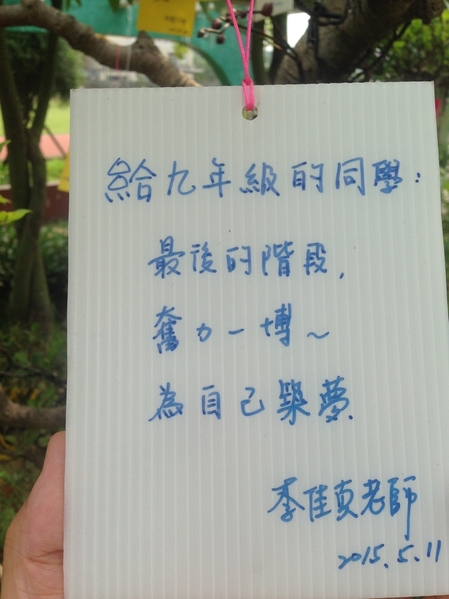 給九年級的同學：
最後的階段，
奮力一博～
為自己築夢
李佳真老師
2015.5.11